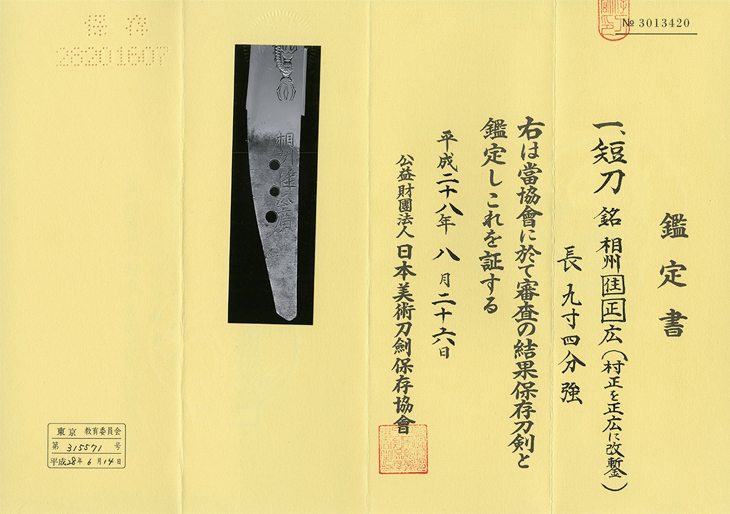 № 3013420
鑑定書
一、短刀 銘 相州住正広(村正を正広に改鏨)
長 九寸四分強
右は當協會に於て審査の結果保存刀剣と
鑑定しこれを証する
平成二十八年 八月二十六日
公益財團法人 日本美術刀劍保存協會
相州住
保存
28201607
東京 教育委員会
第 315571 号
平成28年6月14日